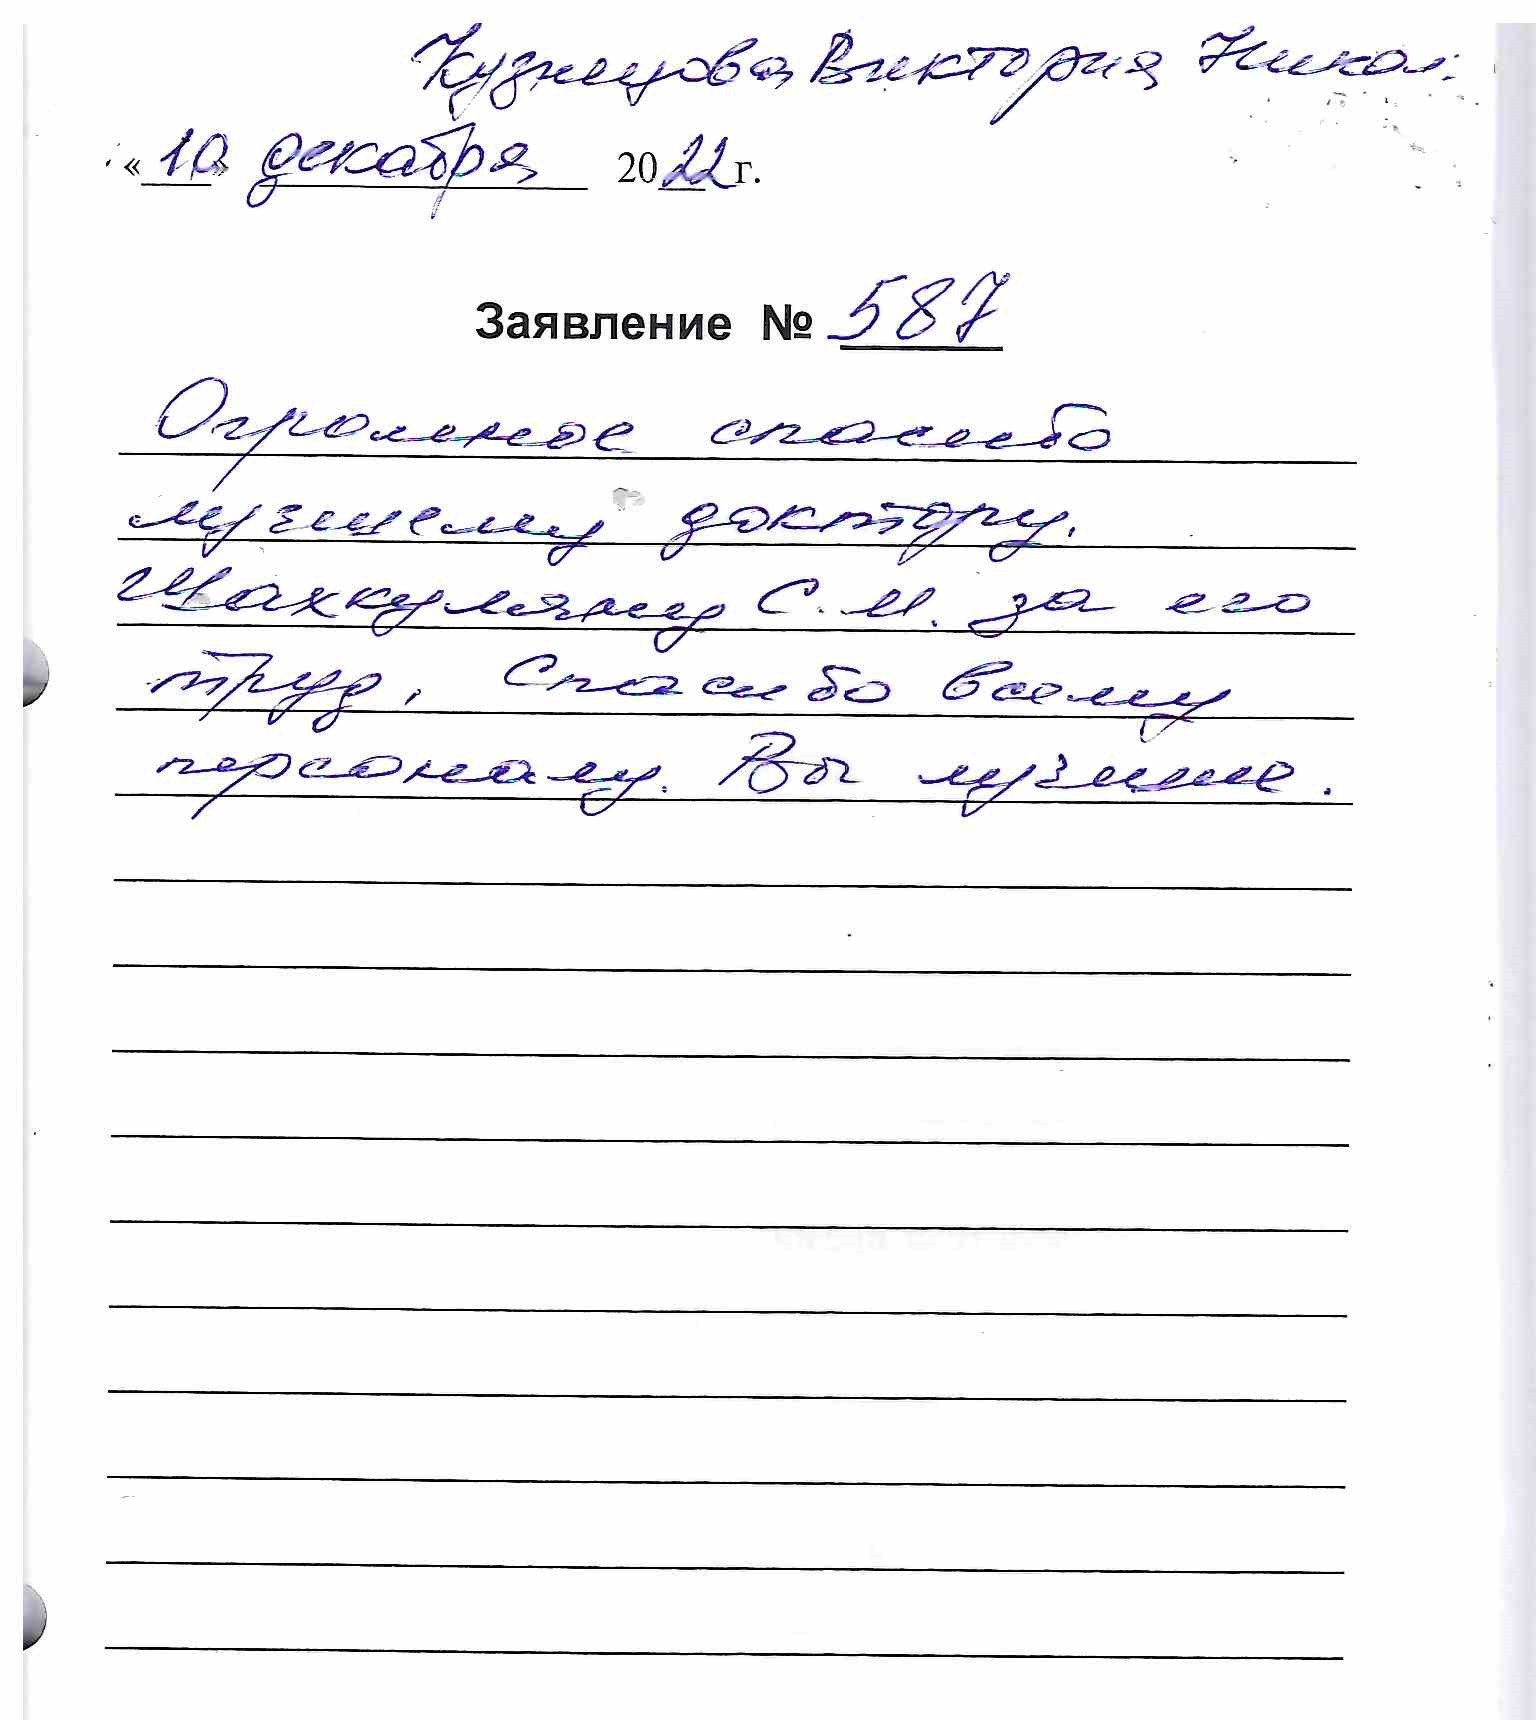 Кузнецова Виктория Никол.
«10» декабря 2022 г.
Заявление № 587
Огромное спасибо
лучшему доктору.
Шахкуляну С. И. за его
труд. Спасибо всему
персоналу. Вы лучшие.